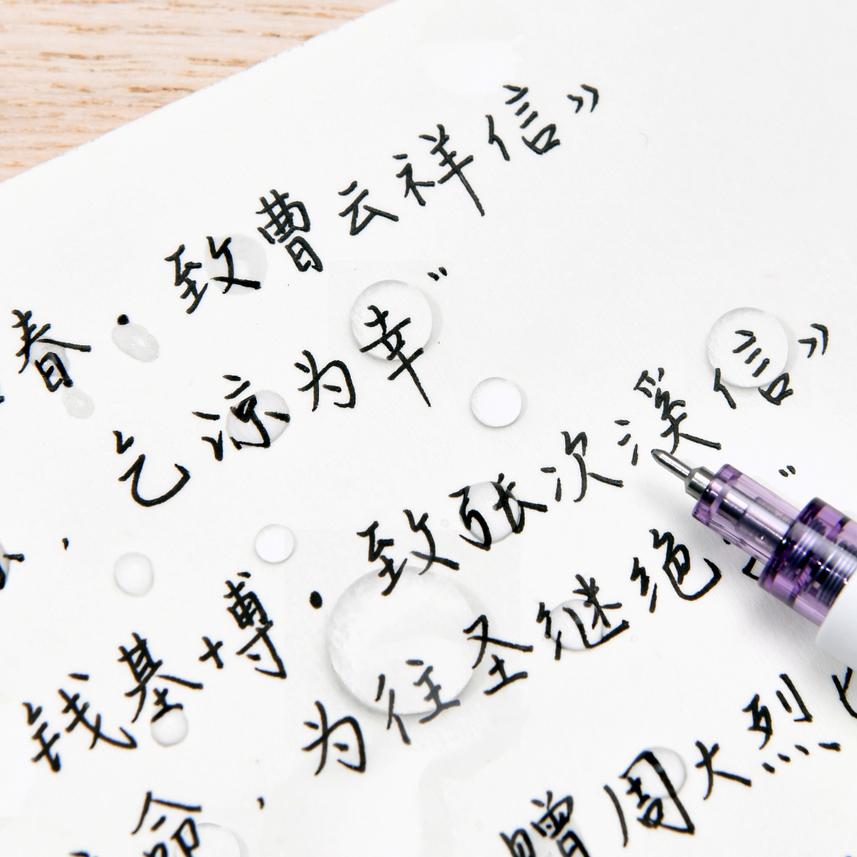 春·致曹云祥信》
乞谅为幸”
钱基博·致张次溪信》
命，为往圣继绝
赠周大烈